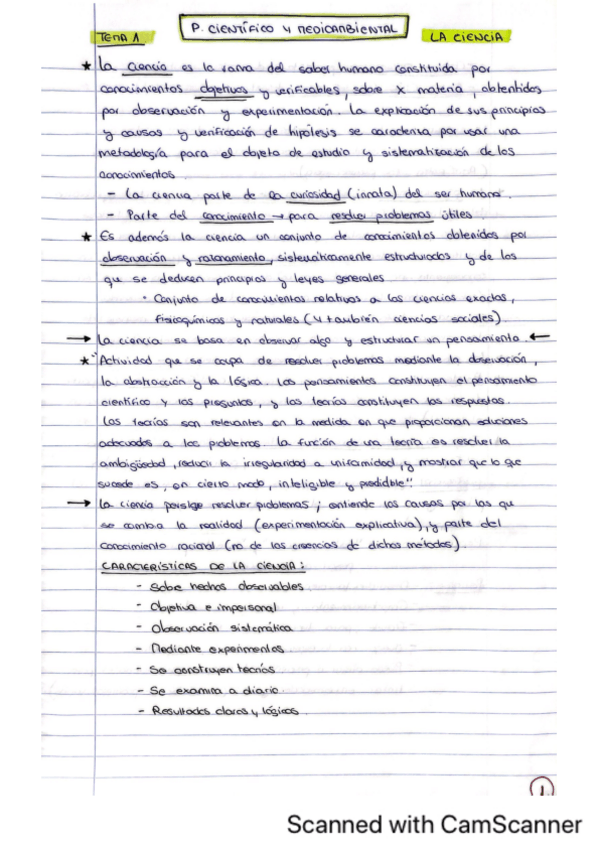 TEMA 1
P. CIENTÍFICO Y MEDIOAMBIENTAL
LA CIENCIA
★ La ciencia es la rama del saber humano constituida por
conocimientos objetivos y verificables, sobre x materia, obtenidos
por observación y experimentación. La explicación de sus principios
y causas y verificación de hipótesis se caracteriza por usar una
metodología para el objeto de estudio y sistematización de los
conocimientos.
- La ciencia parte de la curiosidad (innata) del ser humano.
- Parte del conocimiento → para resolver problemas útiles
★ Es además la ciencia un conjunto de conocimientos obtenidos por
observación y razonamiento, sistemáticamente estructurados y de los
que se deducen principios y leyes generales
• Conjunto de conocimientos relativos a las ciencias exactas,
fisicoquímicas y naturales (y también ciencias sociales).
→ La ciencia se basa en observar algo y estructurar un pensamiento. ←
★ "Actividad que se ocupa de resolver problemas mediante la observación,
la abstracción y la lógica. Los pensamientos constituyen el pensamiento
científico y las preguntas, y las teorías constituyen las respuestas.
Las teorías son relevantes en la medida en que proporcionan soluciones
adecuadas a los problemas. La función de una teoría es resolver la
ambigüedad, reducir la irregularidad a uniformidad, y mostrar que lo que
sucede es, en cierto modo, inteligible y predidble".
→ La ciencia persigue resolver problemas; entiende las causas por las que
se cambia la realidad (experimentación explicativa), y parte del
conocimiento racional (no de las creencias de dichos métodos).
CARACTERÍSTICAS DE LA CIENCIA:
- Sobe hechos observables
- Objetiva e impersonal
- Observación sistemática
- Mediante experimentos
- Se construyen teorías
- Se examina a diario
- Resultados claros y lógicos
1
Scanned with CamScanner